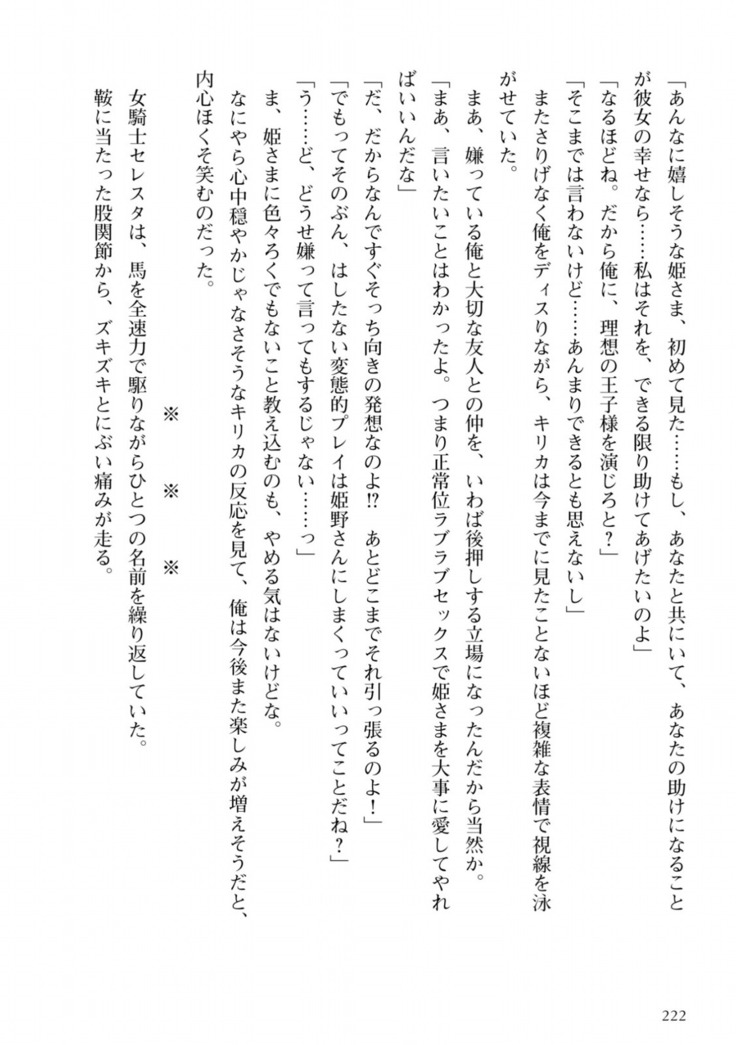 「あんなに嬉しそうな姫さま、初めて見た……もし、あなたと共にいて、あなたの助けになること
が彼女の幸せなら……私はそれを、できる限り助けてあげたいのよ」
「なるほどね。だから俺に、理想の王子様を演じろと?」
「そこまでは言わないけど……あんまりできるとも思えないし」
　またさりげなく俺をディスりながら、キリカは今までに見たことないほど複雑な表情で視線を泳
がせていた。
　まあ、嫌っている俺と大切な友人との仲を、いわば後押しする立場になったんだから当然か。
「まあ、言いたいことはわかったよ。つまり正常位ラブラブセックスで姫さまを大事に愛してやれ
ばいいんだな」
「だ、だからなんですぐそっち向きの発想なのよ⁉　あとどこまでそれ引っ張るのよ!」
「でもってそのぶん、はしたない変態的プレイは姫野さんにしまくっていいってことだね?」
「う……ど、どうせ嫌って言ってもするじゃない……っ」
　ま、姫さまに色々ろくでもないこと教え込むのも、やめる気はないけどな。
　なにやら心中穏やかじゃなさそうなキリカの反応を見て、俺は今後また楽しみが増えそうだと、
内心ほくそ笑むのだった。
※　※　※
　女騎士セレスタは、馬を全速力で駆りながらひとつの名前を繰り返していた。
　鞍に当たった股関節から、ズキズキとにぶい痛みが走る。
222